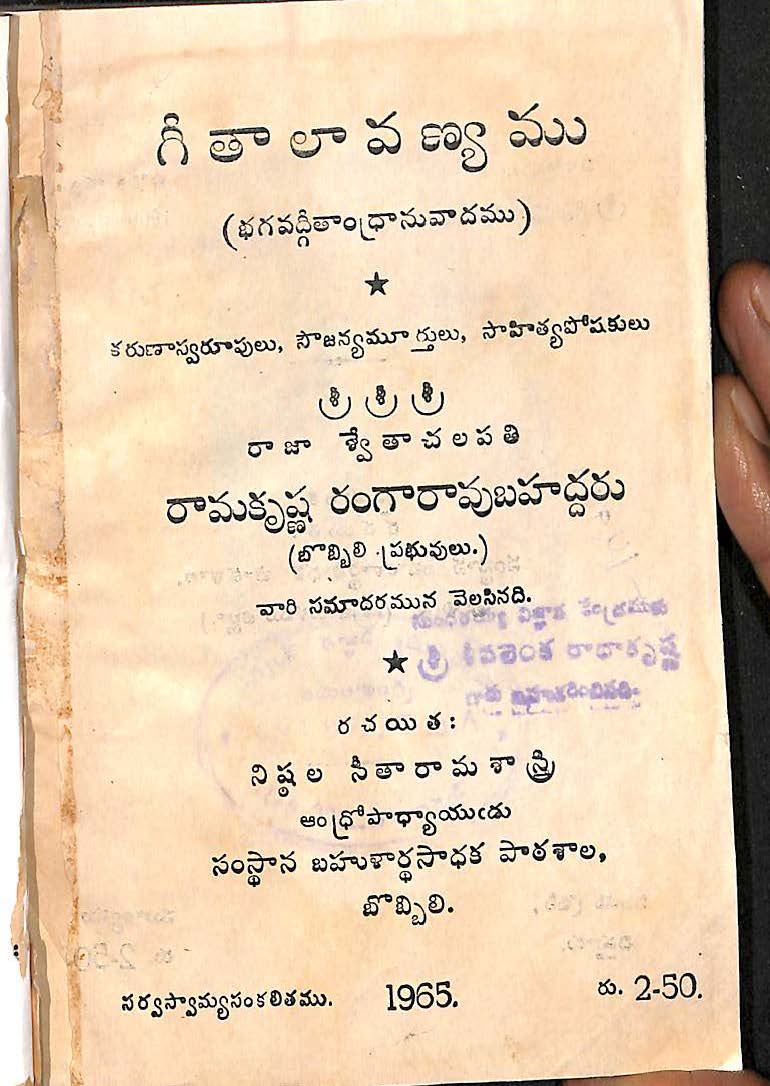 గీతాలావణ్యము
(భగవద్గీతాంధ్రానువాదము)
★
కరుణాస్వరూపులు, సౌజన్యమూర్తులు, సాహిత్యపోషకులు
శ్రీ శ్రీ శ్రీ
రాజా శ్వేతాచలపతి
రామకృష్ణ రంగారావుబహద్దరు
(బొబ్బిలి ప్రభువులు.)
వారి సమాదరమున వెల్లసినది.
సుందరయ్య విజ్ఞాన కేంద్రమునకు
★ శ్రీ శివలెంక రాధాకృష్ణ
గారు బహూకరించినది.
రచయిత:
నిష్ఠల సీతారామశాస్త్రి
ఆంధ్రోపాధ్యాయుఁడు
సంస్థాన బహుళార్థసాధక పాఠశాల,
బొబ్బిలి.
సర్వస్వామ్యసంకలితము. 1965. రు. 2-50.